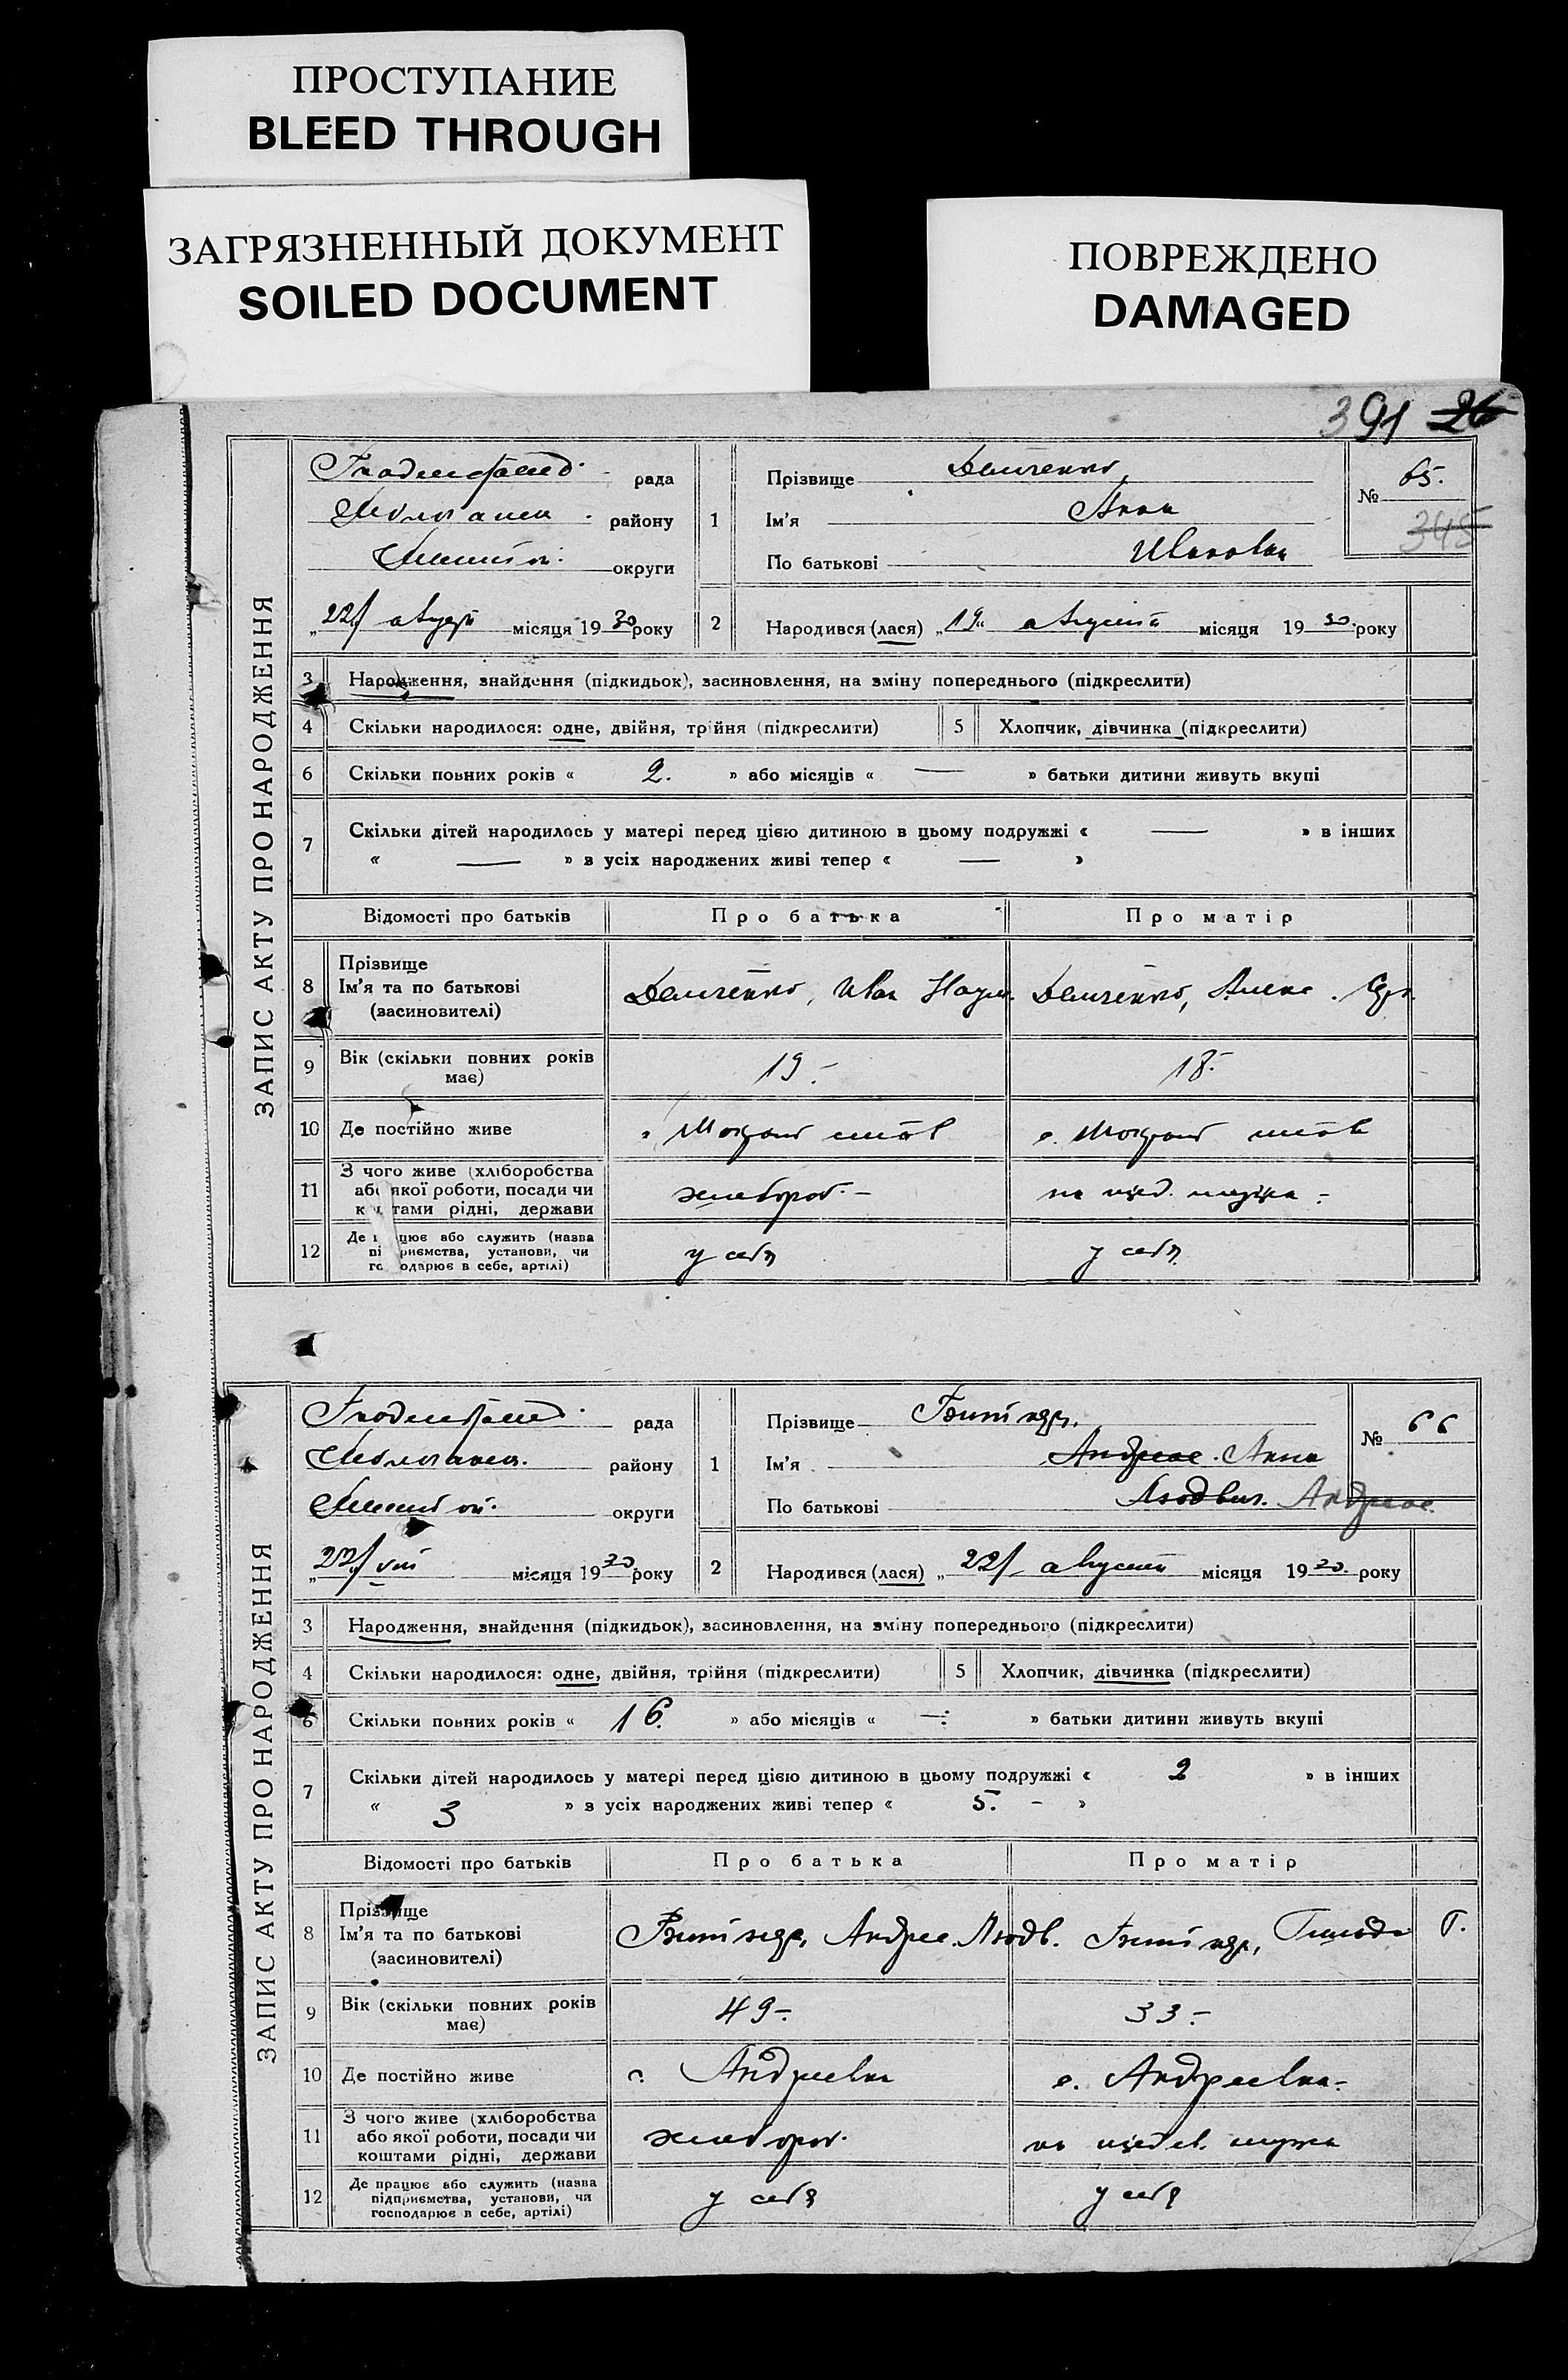 ПРОСТУПАНИЕ
BLEED THROUGH
ЗАГРЯЗНЕННЫЙ ДОКУМЕНТ
SOILED DOCUMENT
ПОВРЕЖДЕНО
DAMAGED
391 26
ЗАПИС АКТУ ПРО НАРОДЖЕННЯ
рада
району
округи
„22/ місяця 1930 року
1
Прізвище Демченко
Ім'я Анна
По батькові Ивановна
№ 65.
345
2
Народився (лася) „19„ августа місяця 1930. року
3 Народження, знайдення (підкидьок), засиновлення, на зміну попереднього (підкреслити)
4 Скільки народилося: одне, двійня, трійня (підкреслити) 5 Хлопчик, дівчинка (підкреслити)
6 Скільки повних років « 2. » або місяців « — » батьки дитини живуть вкупі
7 Скільки дітей народилось у матері перед цією дитиною в цьому подружжі « — » в інших
« — » з усіх народжених живі тепер « — »
Відомості про батьків Про батька Про матір
8 Прізвище
Ім'я та по батькові
(засиновителі)
Демченко, Иван Наум. Демченко, Алекс.
9 Вік (скільки повних років має) 19.- 18.-
10 Де постійно живе
11 З чого живе (хліборобства
або якої роботи, посади чи
коштами рідні, держави
хлебороб.- на ижд. мужа -
12 Де працює або служить (назва
підприємства, установи, чи
господарює в себе, артілі)
у себя у себя
ЗАПИС АКТУ ПРО НАРОДЖЕННЯ
рада
району
округи
„22/ VIII місяця 1930 року
1
Прізвище
Ім'я Андреас. Анна
По батькові Людвиг. Андреас.
№ 66
2
Народився (лася) „22/ августа місяця 1930. року
3 Народження, знайдення (підкидьок), засиновлення, на зміну попереднього (підкреслити)
4 Скільки народилося: одне, двійня, трійня (підкреслити) 5 Хлопчик, дівчинка (підкреслити)
6 Скільки повних років « 16. » або місяців « — » батьки дитини живуть вкупі
7 Скільки дітей народилось у матері перед цією дитиною в цьому подружжі « 2 » в інших
« 3 » з усіх народжених живі тепер « 5. - »
Відомості про батьків Про батька Про матір
8 Прізвище
Ім'я та по батькові
(засиновителі)
Андреас. Людв. Г.
9 Вік (скільки повних років має) 49- 33-
10 Де постійно живе с. Андреевка с. Андреевка-
11 З чого живе (хліборобства
або якої роботи, посади чи
коштами рідні, держави
хлебороб. на мужа
12 Де працює або служить (назва
підприємства, установи, чи
господарює в себе, артілі)
у себя у себя